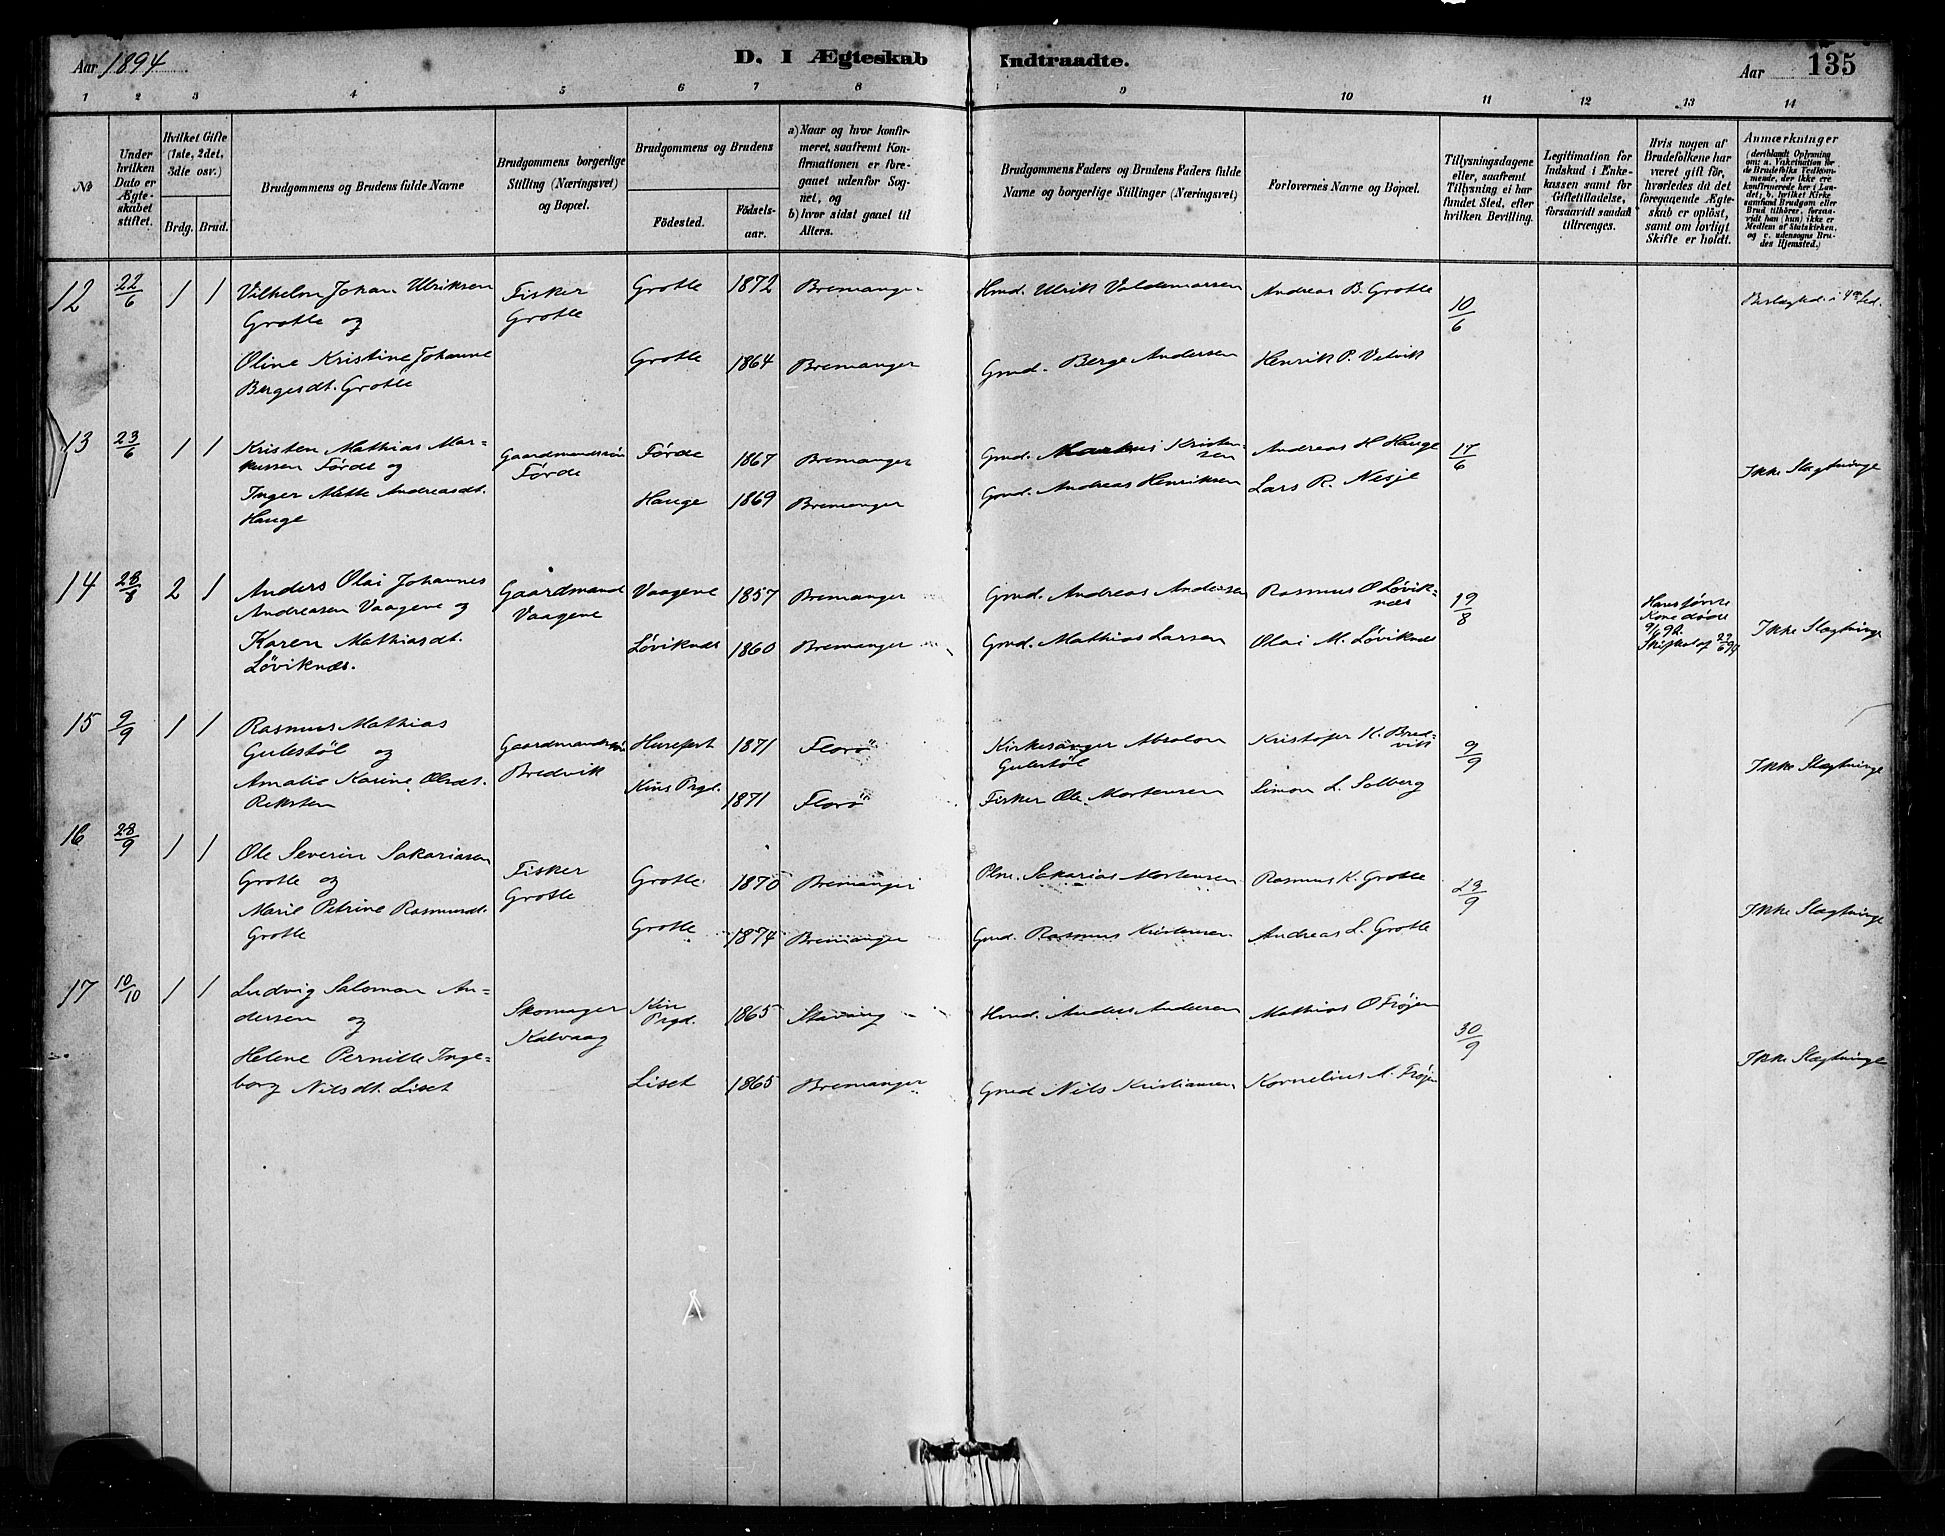 Aar 1894
D. I Ægteskab Indtraadte.
Aar 135
1 2 3 4 5 6 7 8 9 10 11 12 13 14
№
Under hvilken Dato er Ægteskabet stiftet.
Hvilket Gifte (1ste, 2det, 3die osv.)
Brdg. Brud.
Brudgommens og Brudens fulde Navne
Brudgommens borgerlige Stilling (Næringsvei) og Bopæl.
Brudgommens og Brudens
Födested.
Födsels-aar.
a) Naar og hvor konfirmeret, saafremt Konfirmationen er foregaaet udenfor Sognet, og
b) hvor sidst gaaet til Alters.
Brudgommens Faders og Brudens Faders fulde Navne og borgerlige Stillinger (Næringsvei)
Forlovernes Navne og Bopæl.
Tillysningsdagene eller, saafremt Tillysning ei har fundet Sted, efter hvilken Bevilling.
Legitimation for Indskud i Enkekassen samt for Giftetilladelse, forsaavidt saadan tiltrænges.
Hvis nogen af Brudefolkene har været gift för, hvorledes da det foregaaende Ægteskab er oplöst, samt om lovligt Skifte er holdt.
Anmærkninger
(deriblandt Oplysning om: a. Vakcination for de Brudefolks Vedkommende, der ikke ere konfirmerede her i Landet; b. hvilket Kirkesamfund Brudgom eller Brud tilhörer, forsaavidt han (hun) ikke er Medlem af Statskirken, og c. udensogns Brudes Hjemsted.)
12 22/6 1 1 Vilhelm Johan Ulriksen Fisker Grotle 1872 Bremanger Hmd. Ulrik Valdemarsen Andreas B. Grotle 10/6 Beslægted i 4de Led.
Grotle og Grotle
Oline Kristine Johanne Grotle 1864 Bremanger Gmd. Berge Andersen Henrik P. Vetvik
Bergesdt. Grotle
13 23/6 1 1 Kristen Mathias Mar- Gaardmandssön Förde 1867 Bremanger Gmd. Markus Kristen- Andreas H Hauge 17/6 Ikke Slægtninge
kussen Förde og Förde sen
Inger Mette Andreasdt. Hauge 1869 Bremanger Gmd. Andreas Henriksen Lars R. Nesje
Hauge
14 28/8 2 1 Anders Olai Johannes Gaardmand Vaagene 1857 Bremanger Gmd. Andreas Andersen Rasmus O Løvik- 19/8
Andreasen Vaagene og Vaagene næs
Karen Mathiasdt. Løviknæs 1860 Bremanger Gmd. Mathias Larsen Olai M. Løviknæs
Løviknæs.
Kone døde
Ikke Slægtninge
15 9/9 1 1 Rasmus Mathias
Gulestöl og Gaardmandssön Husefest 1871 Florö Kirkesanger Absolon Kristofer K. Bred- 9/9
Bredvik Gulestöl vik
Amalie Karine Olsdt. Kins Prgd. 1871 Florö Fisker Ole Mortensen Simon L. Solberg
Reksten
Ikke Slægtninge
16 28/9 1 1 Ole Severin Sakariasen Fisker Grotle 1870 Bremanger Plm. Sakarias Mortensen Rasmus K. Grotle 23/9
Grotle og Grotle
Marie Petrine Rasmusdt. Grotle 1874 Bremanger Gmd. Rasmus Kristensen Andreas L. Grotle
Grotle
Ikke Slægtninge
17 10/10 1 1 Ludvig Salomon An- Skomager Kin Prgd. 1865 Stavang Hmd. Anders Andersen Mathias O Frøjen 30/9
dersen og Kalvaag
Helene Pernille Inge- Liset 1865 Bremanger Gmd Nils Kristiansen Kornelius A. Frøjen
borg Nilsdt. Liset
Ikke Slægtninge